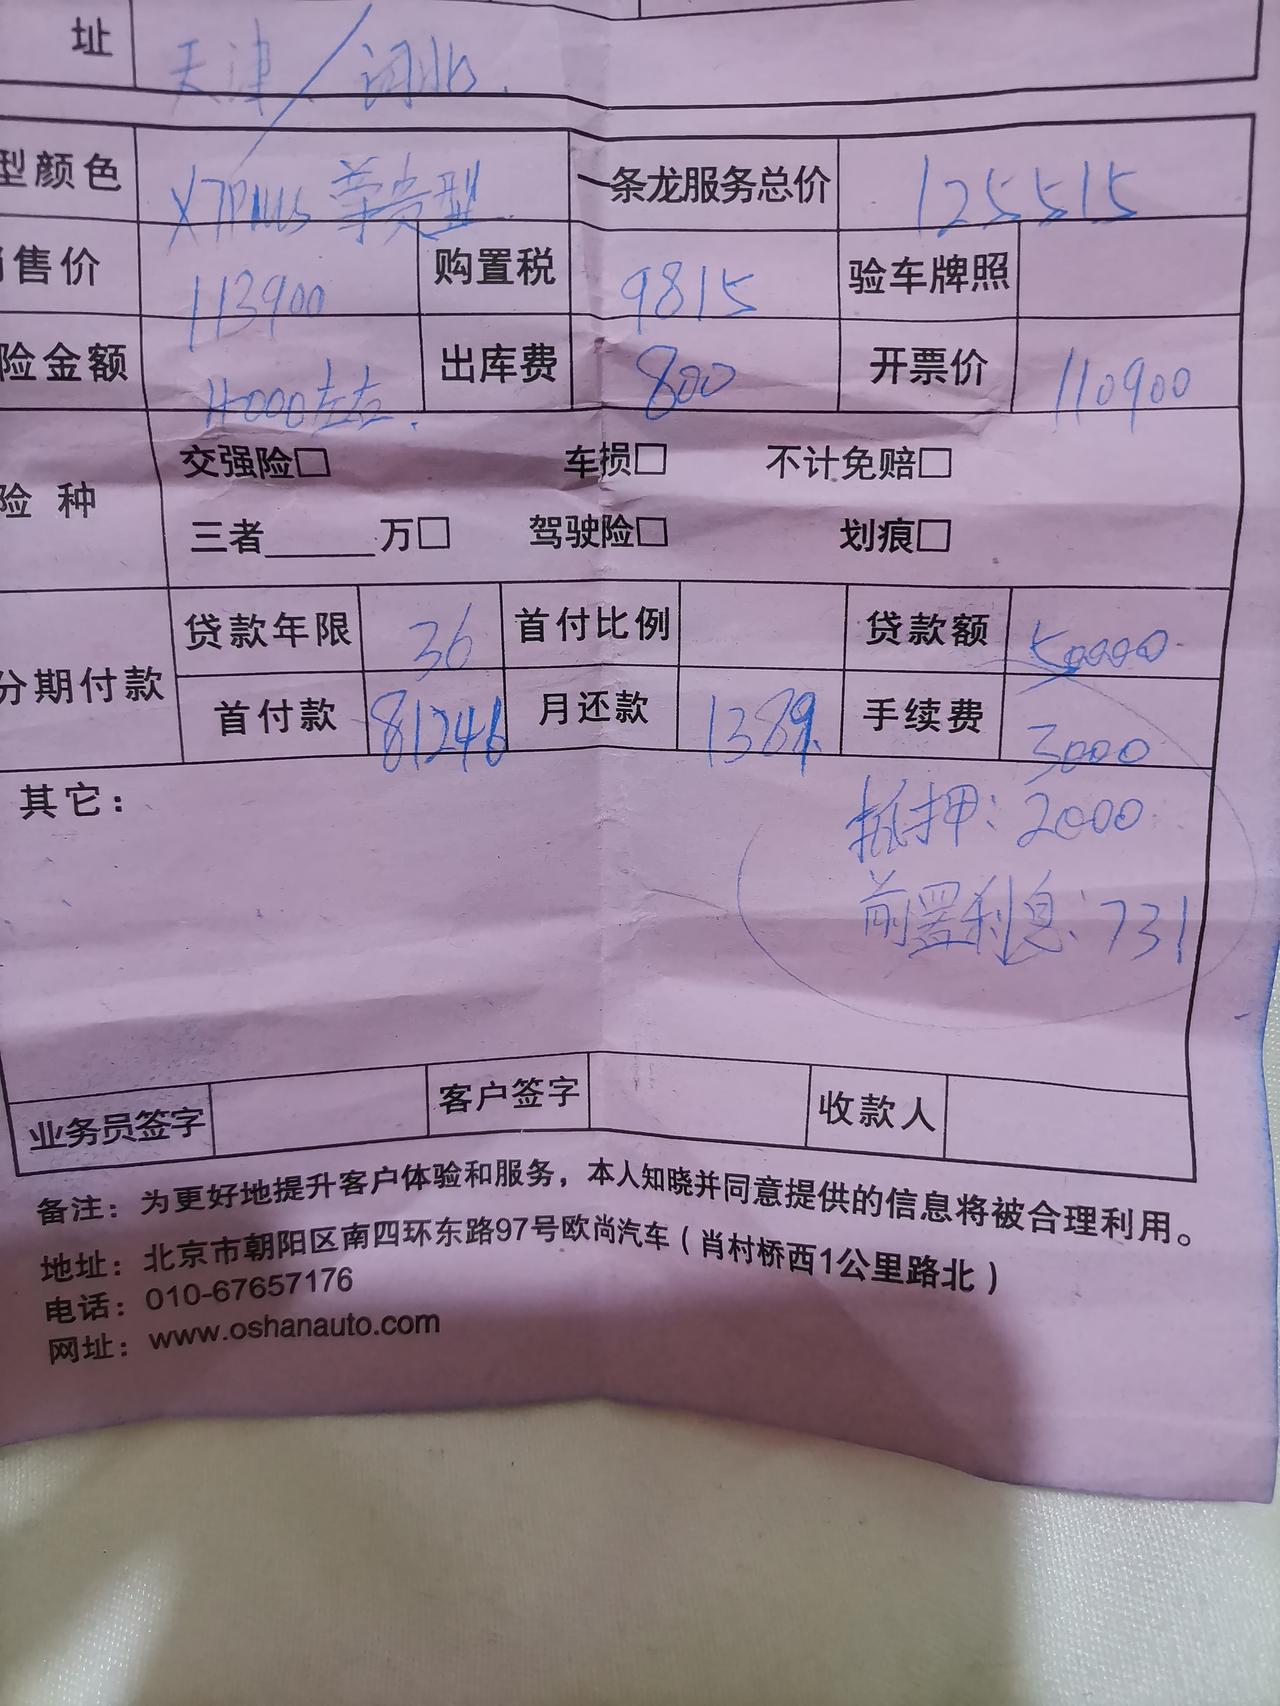 址 天津/河北.
型颜色 X7PLUS 尊贵型. 一条龙服务总价 125515
售价 113900 购置税 9815 验车牌照
险金额 出库费 800 开票价 110900
左右.
险种 交强险□ 车损□ 不计免赔□
三者______万□ 驾驶险□ 划痕□
分期付款 贷款年限 36 首付比例 贷款额 50000
首付款 81246 月还款 1389. 手续费 3000
其它：
抵押：2000
前置利息：731
业务员签字 客户签字 收款人
备注：为更好地提升客户体验和服务，本人知晓并同意提供的信息将被合理利用。
地址：北京市朝阳区南四环东路97号欧尚汽车（肖村桥西1公里路北）
电话：010-67657176
网址：www.oshanauto.com